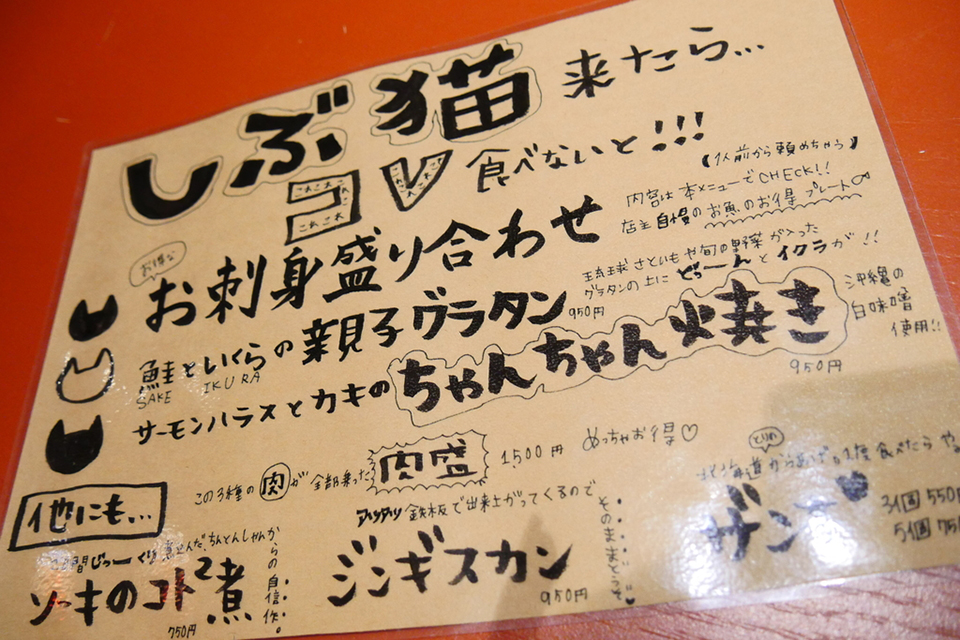 しぶ猫 来たら…
コレ 食べないと!!!
これこれ これこれ これこれ
(1人前から頼めちゃう)
お得な
お刺身盛り合わせ
内容は本メニューでCHECK!!
店主自慢のお魚のお得プレート
鮭といくらの親子グラタン 950円
SAKE IKURA
琉球さといもや旬の野菜が入った
グラタンの上にどーーんとイクラが!!
サーモンハラスとカキのちゃんちゃん焼き
950円
沖縄の
白味噌
使用!!
他にも…
この3種の肉が全部乗った 肉盛 1,500円 めっちゃお得♡
時間じっーくり
ちんとんしゃんからの自信作。
ソーキのコト²煮
750円
アッツアツ鉄板で出来上がってくるので
そのままどうぞ
ジンギスカン
950円
とりの
北海道からあげ
食べたらや
ザンギ
3個 550円
5個